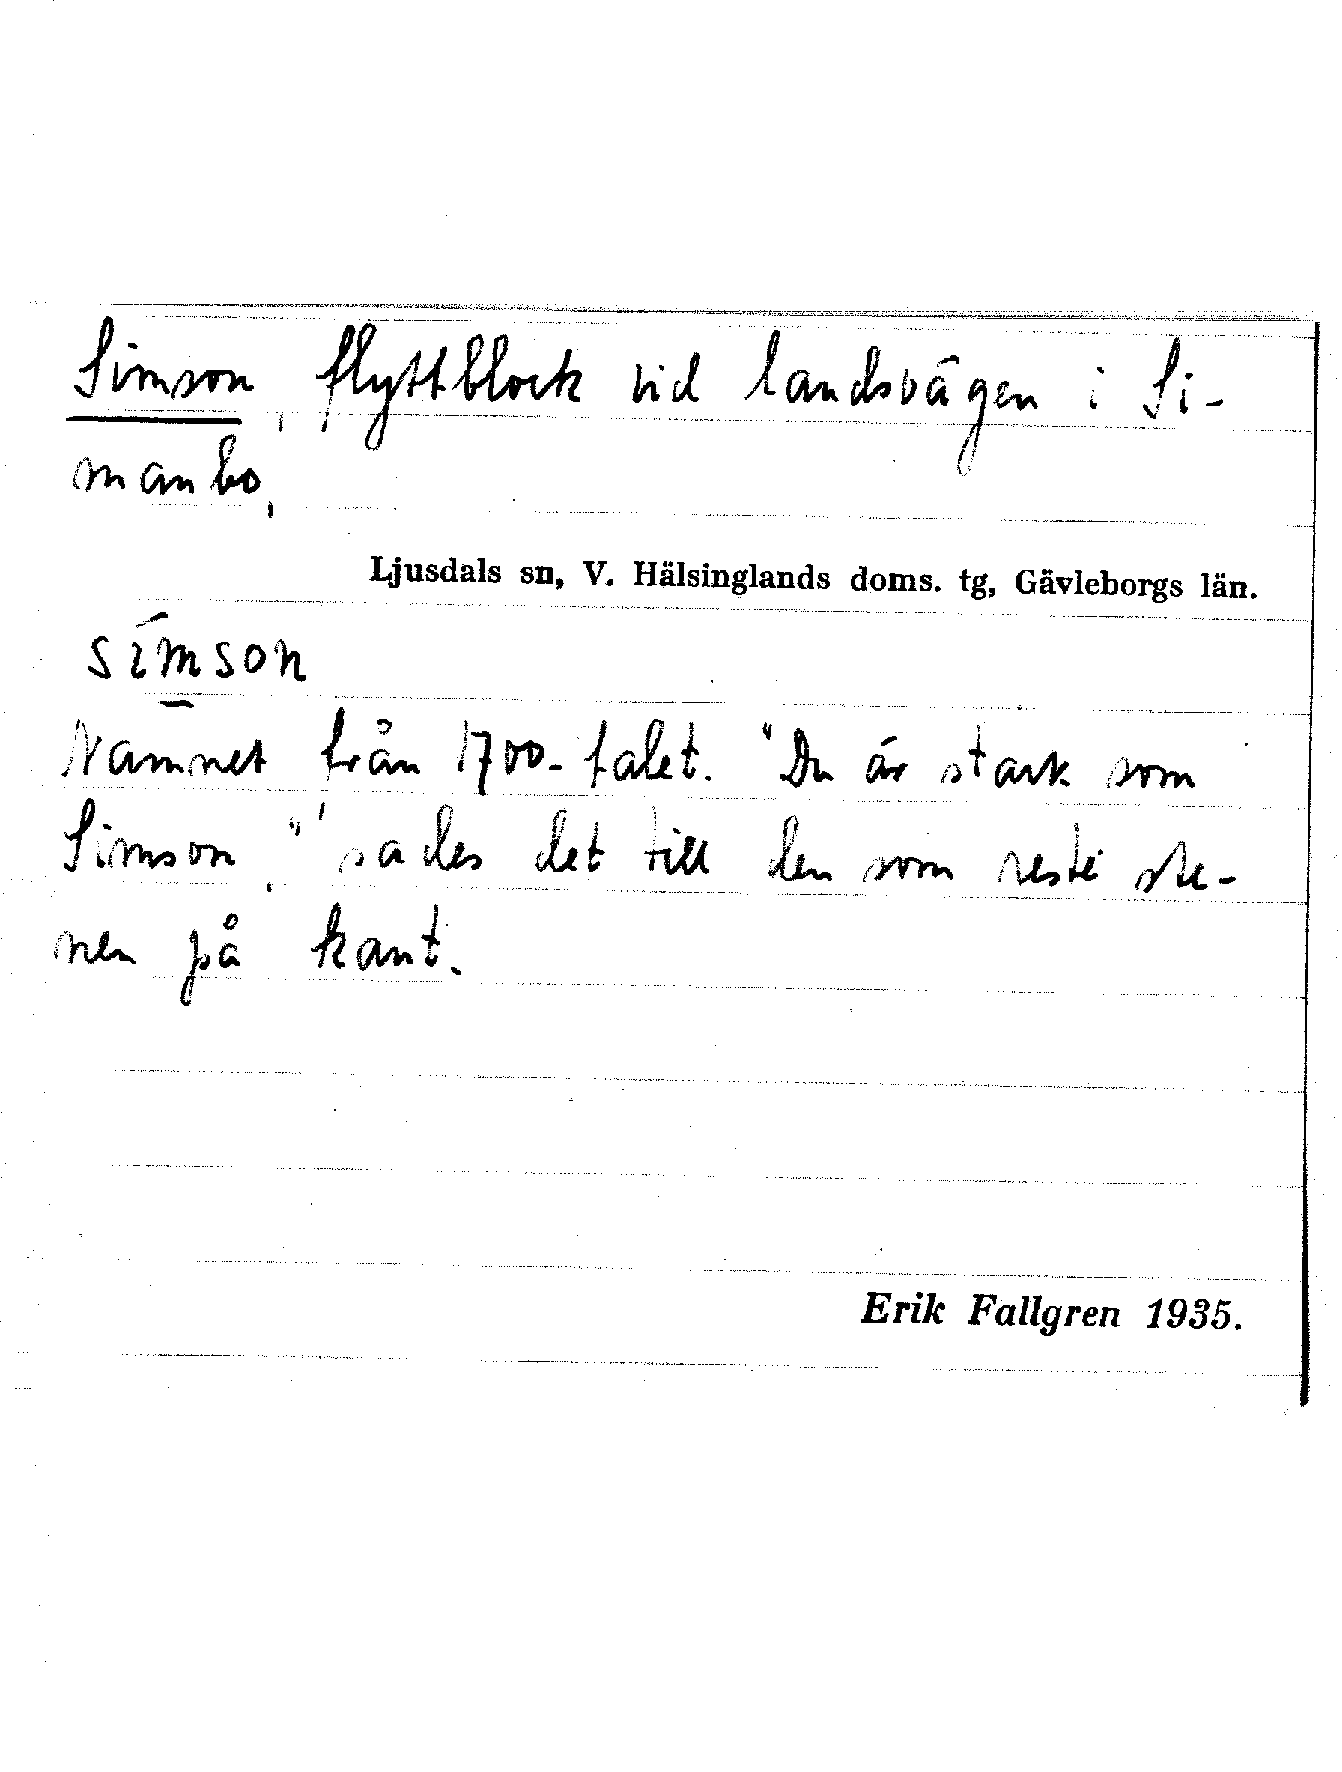 Simson, flyttblock vid landsvägen i Si-
manbo,
Ljusdals sn, V. Hälsinglands doms. tg, Gävleborgs län.
símson
Namnet från 1700-talet. "Du är stark som
Simson," sades det till den som reste ste-
nen på kant.
Erik Fallgren 1935.